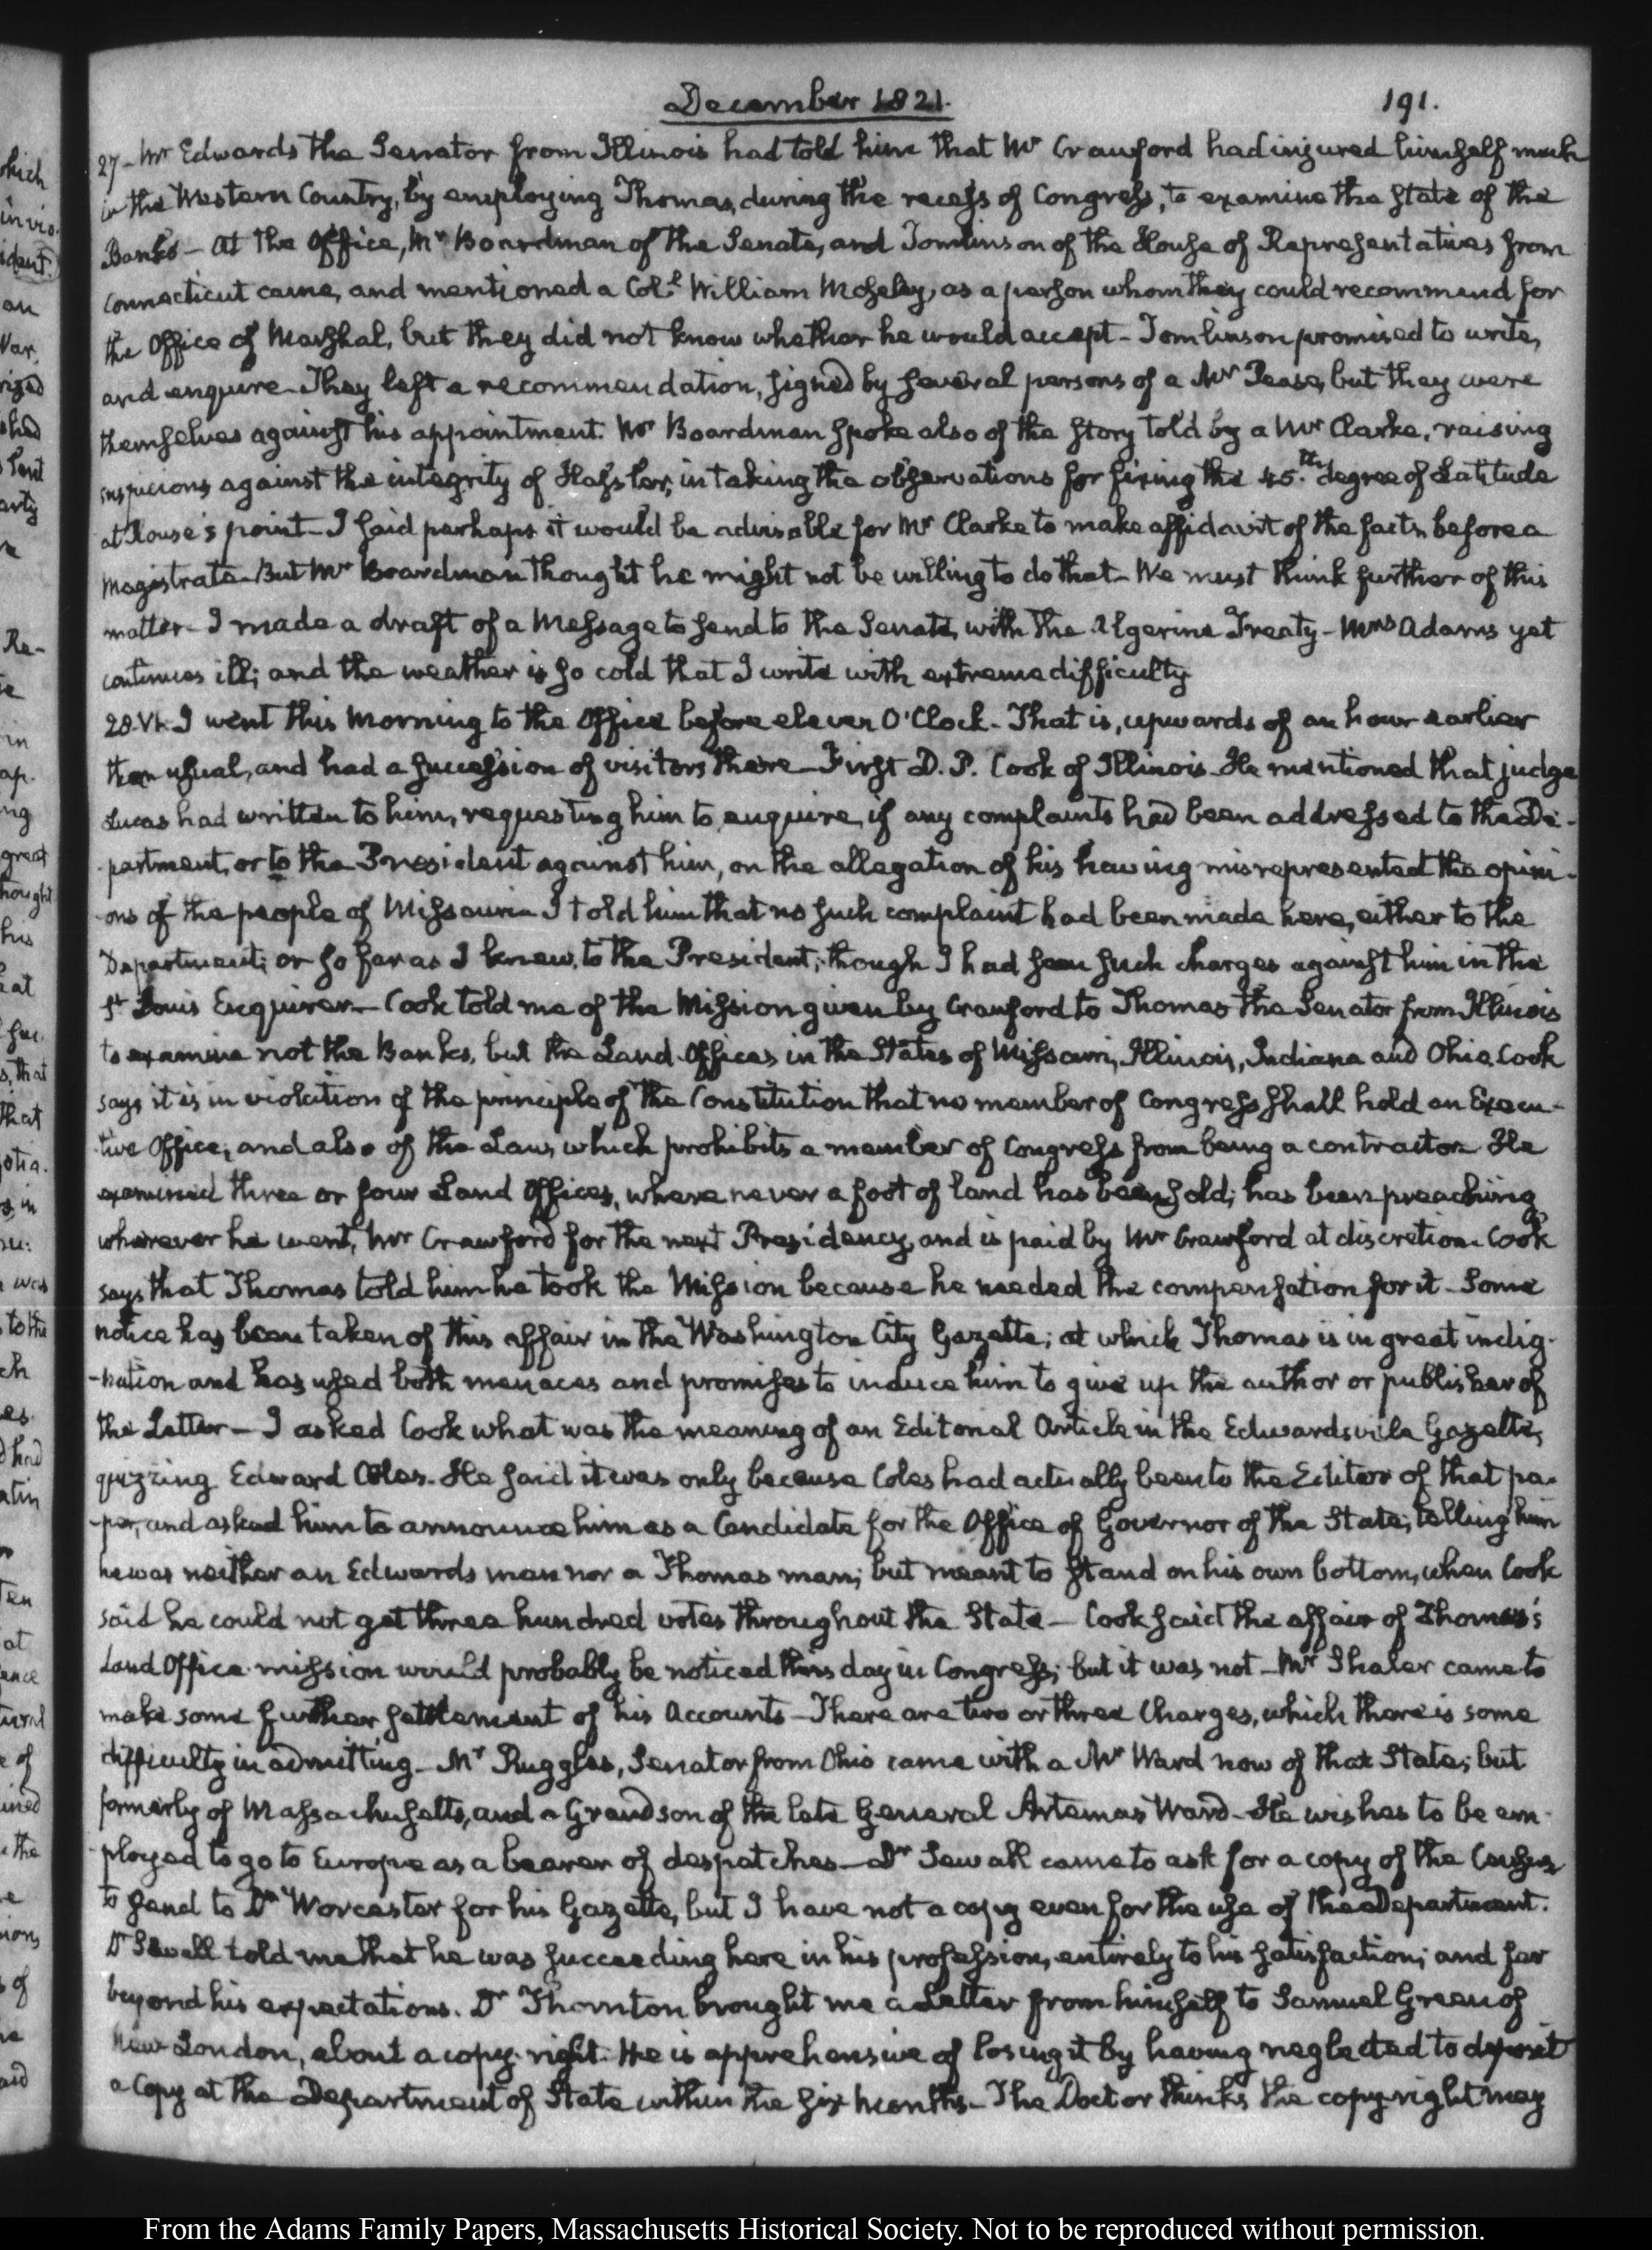 December 1821.
191.
27- Mr Edwards the Senator from Illinois had told him that Mr Crawford had injured himself much
in the Western Country, by employing Thomas, during the recess of Congress, to examine the state of the
Banks - At the Office, Mr Boardman of the Senate, and Tomlinson of the House of Representatives from
Connecticut came, and mentioned a Coll. William Moseley, as a person whom they could recommend for
the Office of Marshal, but they did not know whether he would accept - Tomlinson promised to write,
and enquire - They left a recommendation, signed by several persons of a Mr Pease, but they were
themselves against his appointment. Mr Boardman spoke also of the story told by a Mr Clarke, raising
suspicions against the integrity of Hassler, in taking the observations for fixing the 45.th degree of Latitude
at Rouse's point - I said perhaps it would be advisable for Mr Clarke to make affidavit of the facts before a
Magistrate - But Mr Boardman thought he might not be willing to do that - We must think further of this
matter - I made a draft of a Message to send to the Senate, with the Algerine Treaty - Mrs Adams yet
continues ill; and the weather is so cold that I write with extreme difficulty
28. VI. I went this Morning to the Office before eleven O'Clock - That is, upwards of an hour earlier
than usual, and had a succession of visitors there - First D. P. Cook of Illinois - He mentioned that judge
Lucas had written to him, requesting him to enquire, if any complaints had been addressed to the De-
-partment, or to the President against him, on the allegation of his having misrepresented the opini-
-ons of the people of Missouri - I told him that no such complaint had been made here, either to the
Department; or so far as I knew, to the President; though I had seen such charges against him in the
St Louis Enquirer - Cook told me of the Mission given by Crawford to Thomas the Senator from Illinois
to examine not the Banks, but the Land-Offices in the States of Missouri, Illinois, Indiana and Ohio. Cook
says it is in violation of the principle of the Constitution that no member of Congress shall hold an Execu-
-tive Office, and also of the Law, which prohibits a member of Congress from being a contractor - He
examined three or four Land Offices, where never a foot of land has been sold; has been preaching
wherever he went, Mr Crawford for the next Presidency, and is paid by Mr Crawford at discretion. Cook
says that Thomas told him he took the Mission because he needed the compensation for it - Some
notice has been taken of this affair in the Washington City Gazette; at which Thomas is in great indig-
-nation and has used both menaces and promises to induce him to give up the author or publisher of
the Letter - I asked Cook what was the meaning of an Editorial Article in the Edwardsville Gazette,
quizzing Edward Coles. He said it was only because Coles had actually been to the Editor of that pa-
-per, and asked him to announce him as a Candidate for the Office of Governor of the State; telling him
he was neither an Edwards man nor a Thomas man; but meant to stand on his own bottom, when Cook
said he could not get three hundred votes throughout the State - Cook said the affair of Thomas's
Land Office mission would probably be noticed this day in Congress; but it was not - Mr Shaler came to
make some further settlement of his Accounts - There are two or three Charges, which there is some
difficulty in admitting - Mr Ruggles, Senator from Ohio came with a Mr Ward now of that State; but
formerly of Massachusetts, and a Grandson of the late General Artemas Ward - He wishes to be em-
-ployed to go to Europe as a bearer of despatches - Dr Sewall came to ask for a copy of the Census
to send to Dr Worcester for his Gazette, but I have not a copy even for the use of the Department.
Dr Sewall told me that he was succeeding here in his profession, entirely to his satisfaction; and far
beyond his expectations. Dr Thornton brought me a Letter from himself to Samuel Green of
New London, about a copy-right. He is apprehensive of losing it by having neglected to deposit
a Copy at the Department of State within the six months - The Doctor thinks the copy-right may
From the Adams Family Papers, Massachusetts Historical Society. Not to be reproduced without permission.